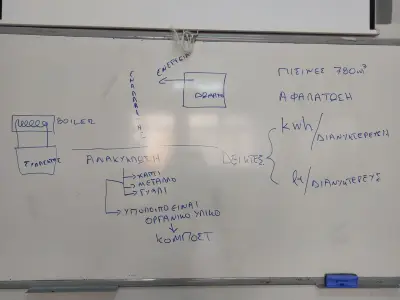 ΕΝΕΡΓΕΙΑ
ΠΙΣΙΝΕΣ 780m²
ΑΦΑΛΑΤΩΣΗ
BOILER
ΑΝΑΚΥΚΛΩΣΗ
ΧΑΡΤΙ
ΜΕΤΑΛΛΟ
ΓΥΑΛΙ
ΥΠΟΛΟΙΠΟ ΕΙΝΑΙ
ΟΡΓΑΝΙΚΟ ΥΛΙΚΟ
ΚΟΜΠΟΣΤ
ΔΕΙΚΤΕΣ
kwh/ΔΙΑΝΥΚΤΕΡΕΥΣΗ
/ΔΙΑΝΥΚΤΕΡΕΥΣ